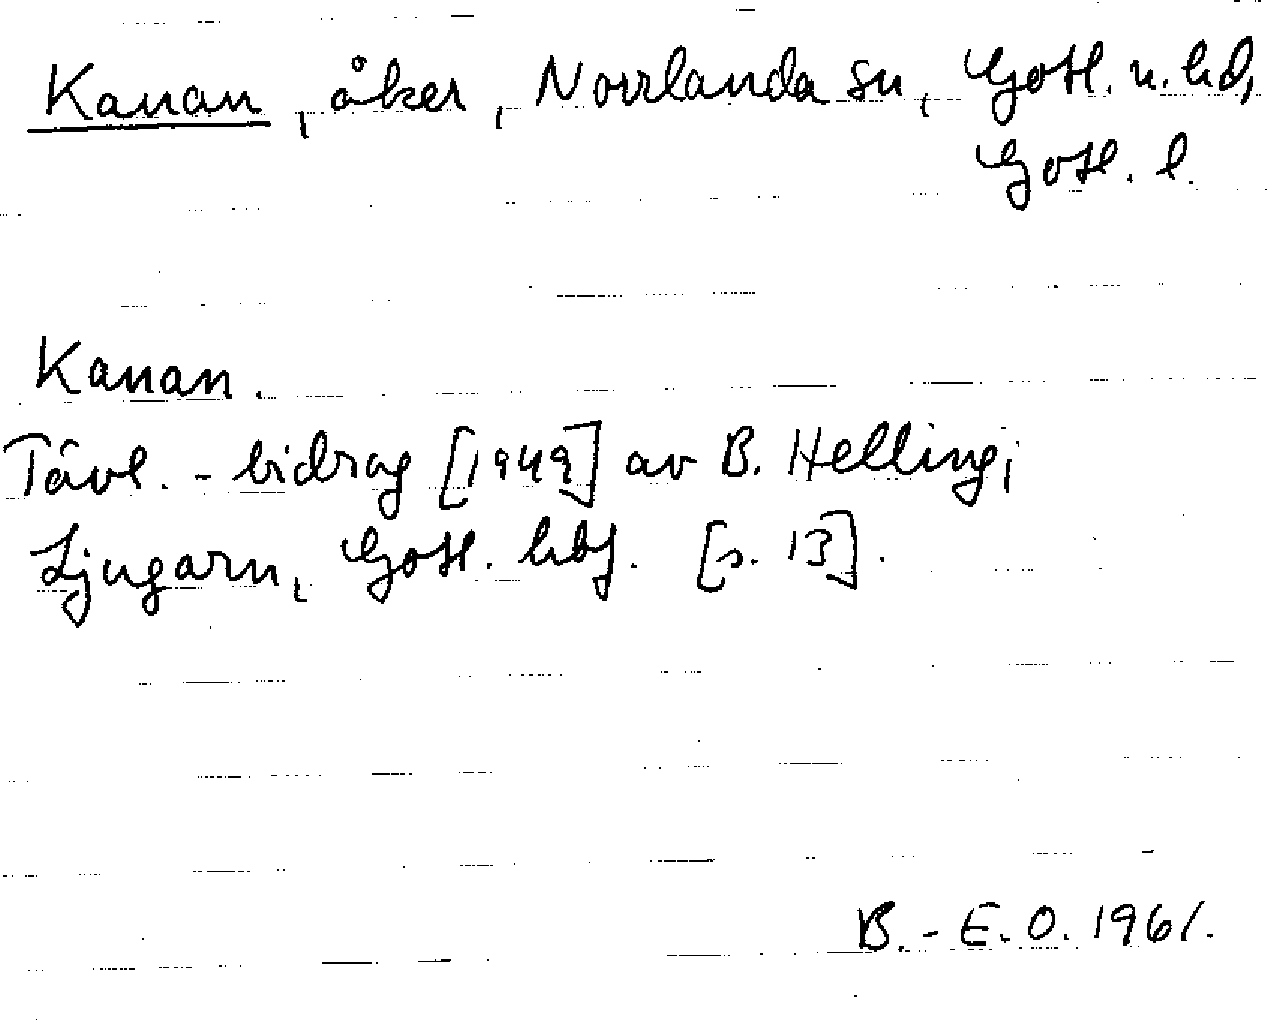 Kanan, åker, Norrlanda sn, Gotl. n. hd,
Gotl. l.
Kanan.
Tävl.-bidrag [1949] av B. Helling;
Ljugarn, Gotl. hbf. [s. 13].
B.-E.O. 1961.